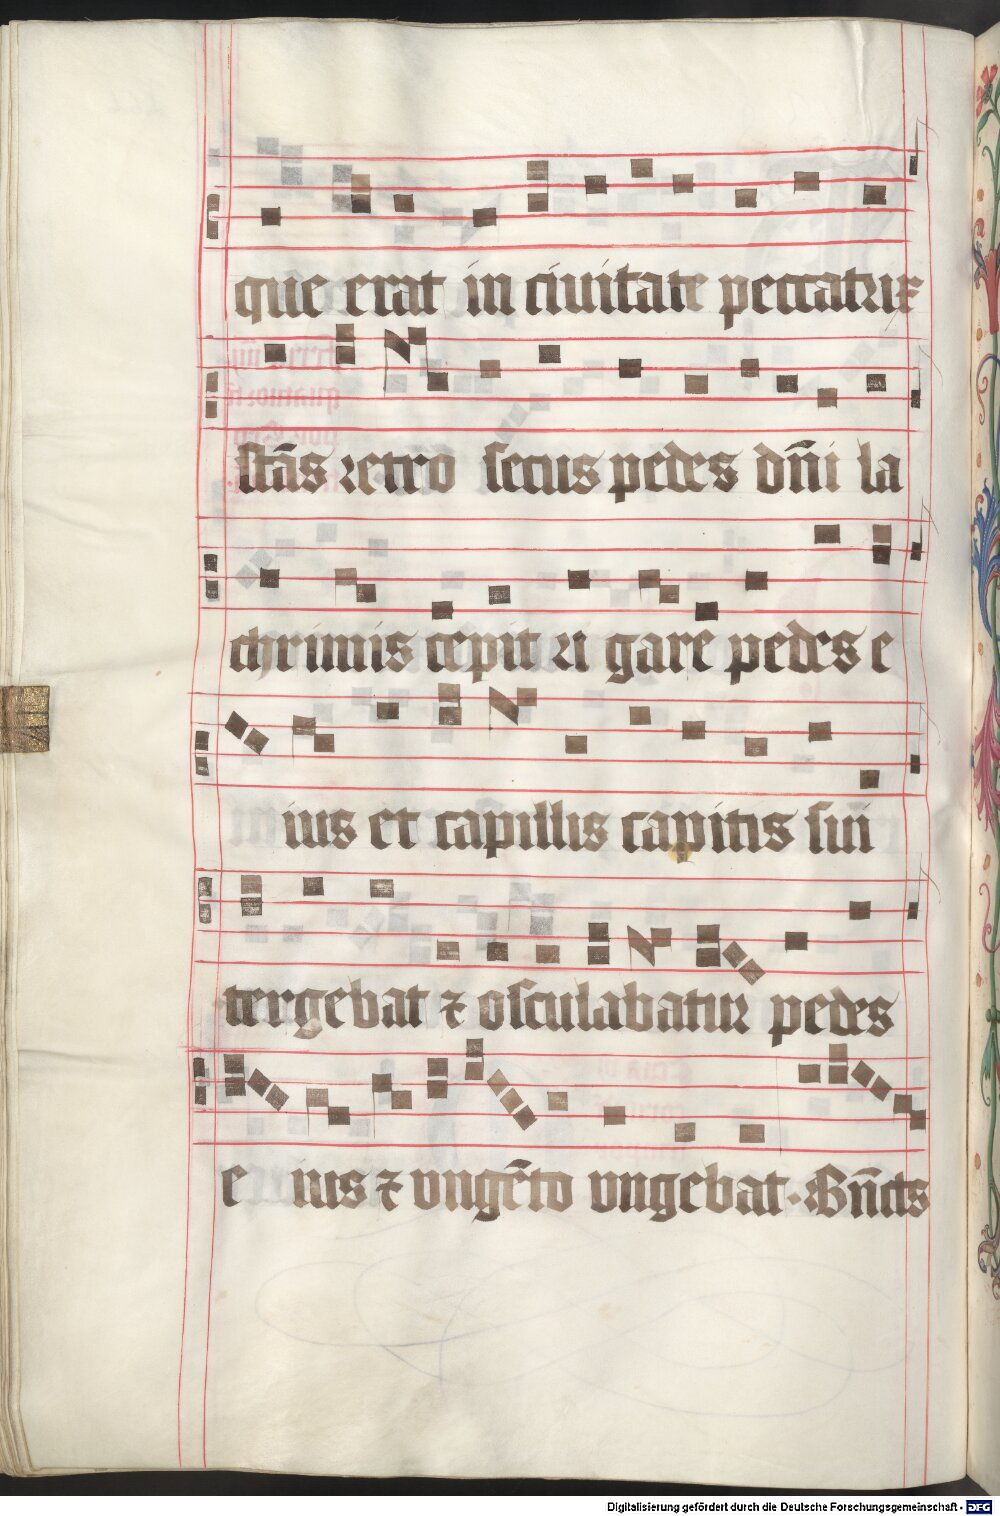 que erat in ciuitate peccatrix
stās retro secus pedes dn̄i la
chrimis cepit ri gare pedes e
ius et capillis capitis sui
tergebat ⁊ osculabatur pedes
e ius ⁊ vngēto vngebat · Bn̄cts
Digitalisierung gefördert durch die Deutsche Forschungsgemeinschaft - DFG